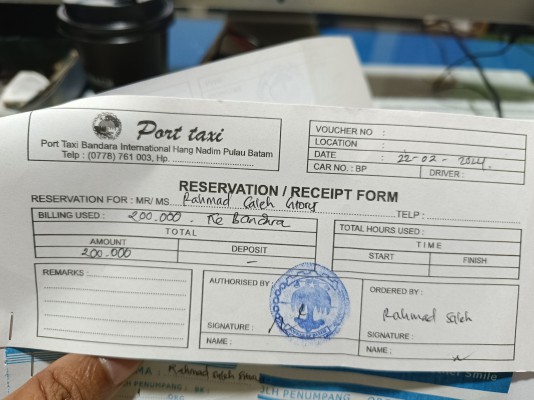 Port taxi
Port Taxi Bandara International Hang Nadim Pulau Batam
Telp : (0778) 761 003, Hp.
VOUCHER NO :
LOCATION :
DATE : 22-02-2024.
CAR NO. : BP DRIVER :
RESERVATION / RECEIPT FORM
RESERVATION FOR : MR/ MS. Rahmad Saleh TELP :
BILLING USED : 200.000. Ke Bandra
TOTAL
AMOUNT DEPOSIT
200.000 -
TOTAL HOURS USED :
TIME
START FINISH
REMARKS :
AUTHORISED BY :
SIGNATURE :
NAME :
ORDERED BY :
Rahmad Saleh
SIGNATURE :
NAME :
Rahmad Saleh
Smile